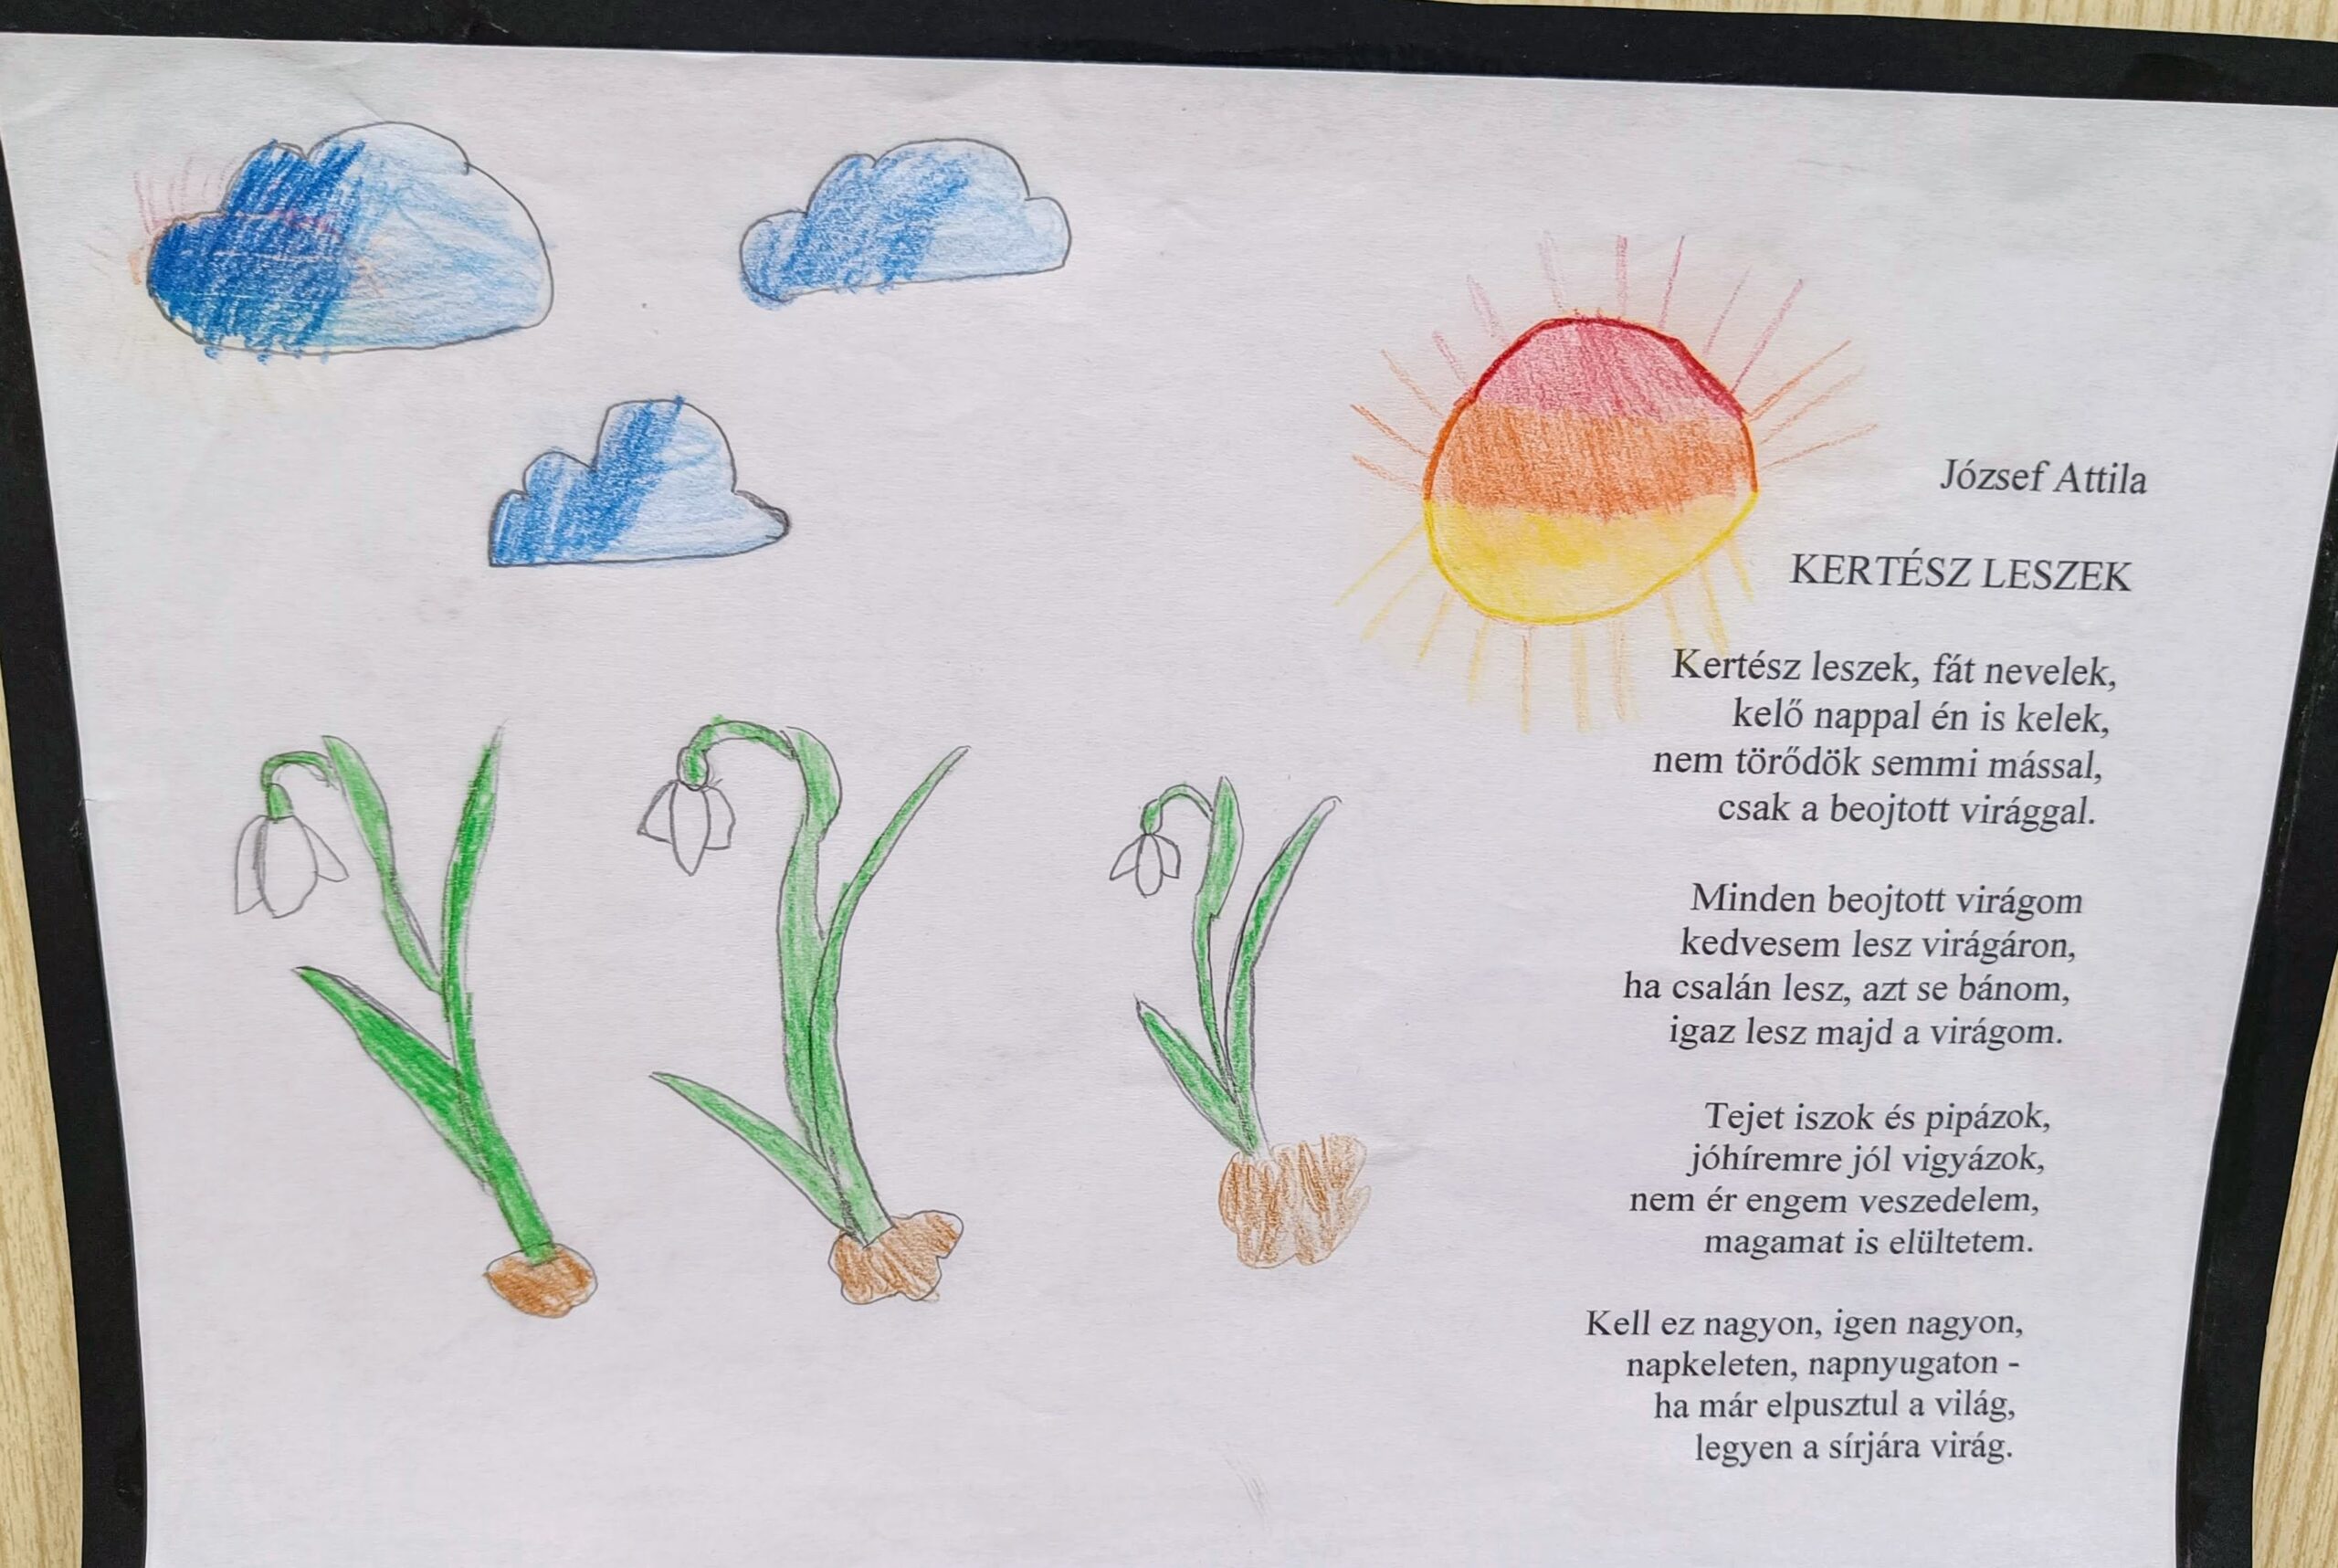 József Attila
KERTÉSZ LESZEK
Kertész leszek, fát nevelek,
kelő nappal én is kelek,
nem törődök semmi mással,
csak a beojtott virággal.
Minden beojtott virágom
kedvesem lesz virágáron,
ha csalán lesz, azt se bánom,
igaz lesz majd a virágom.
Tejet iszok és pipázok,
jóhíremre jól vigyázok,
nem ér engem veszedelem,
magamat is elültetem.
Kell ez nagyon, igen nagyon,
napkeleten, napnyugaton -
ha már elpusztul a világ,
legyen a sírjára virág.